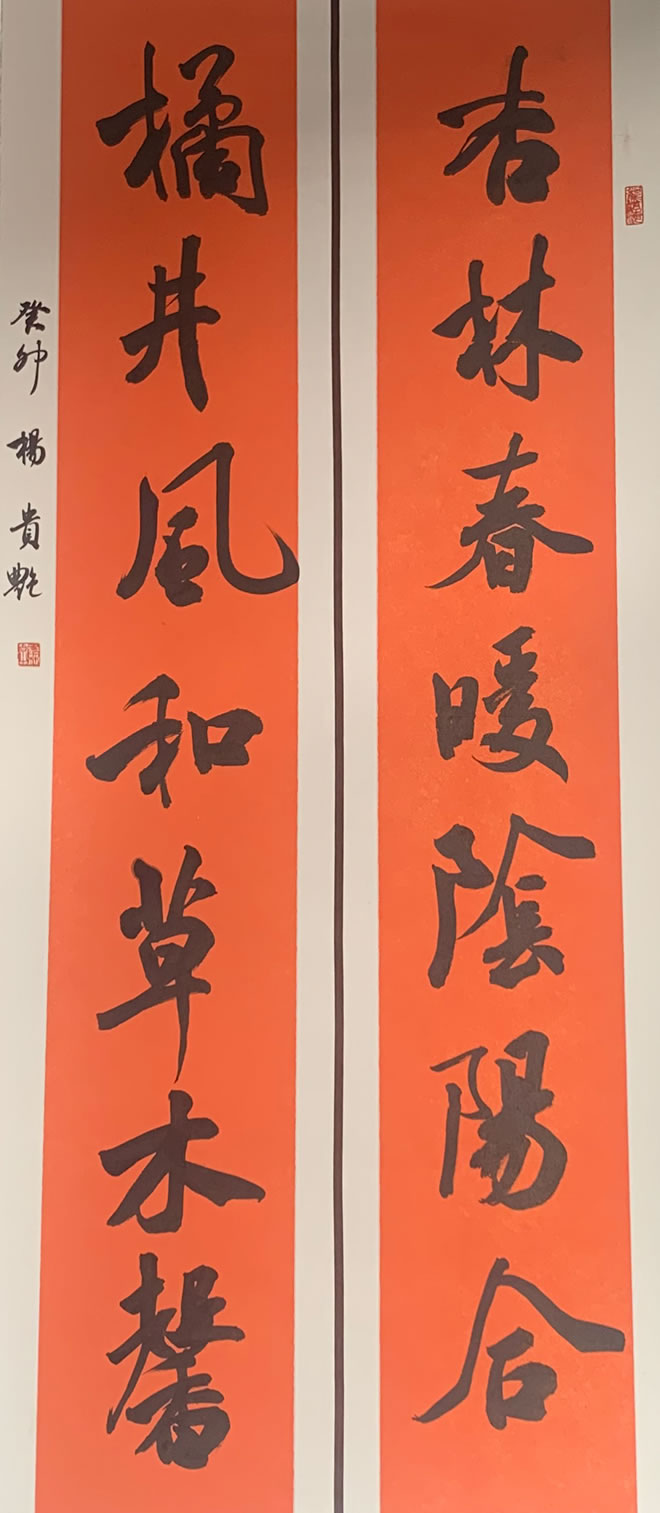 杏林春暖陰陽合
橘井風和草木馨
癸卯 楊貴艷